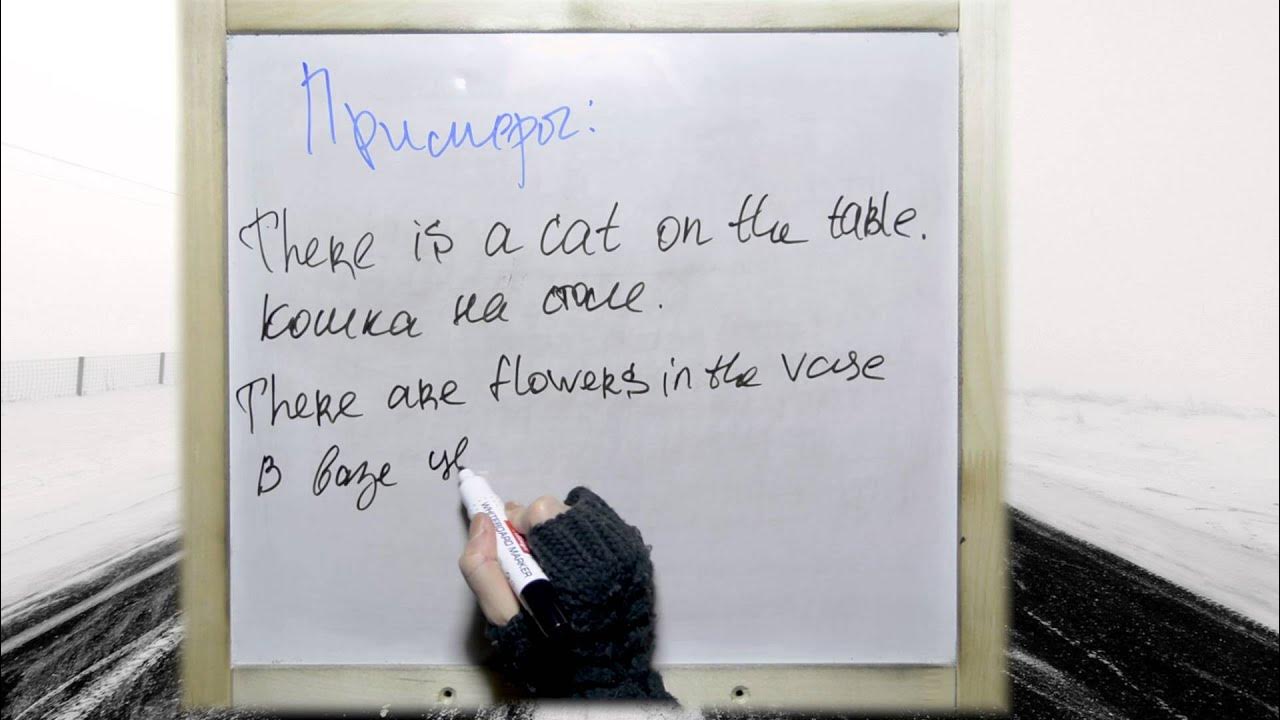 Примеры:
There is a cat on the table.
кошка на столе.
There are flowers in the vase
В вазе цв
WHITEBOARD MARKER